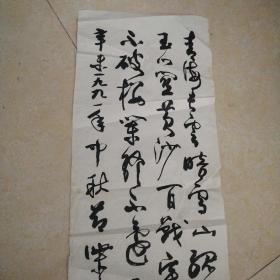 青海长云暗雪山孤
玉门关黄沙百战穿
不破楼兰终不还
辛未一九九一年中秋节